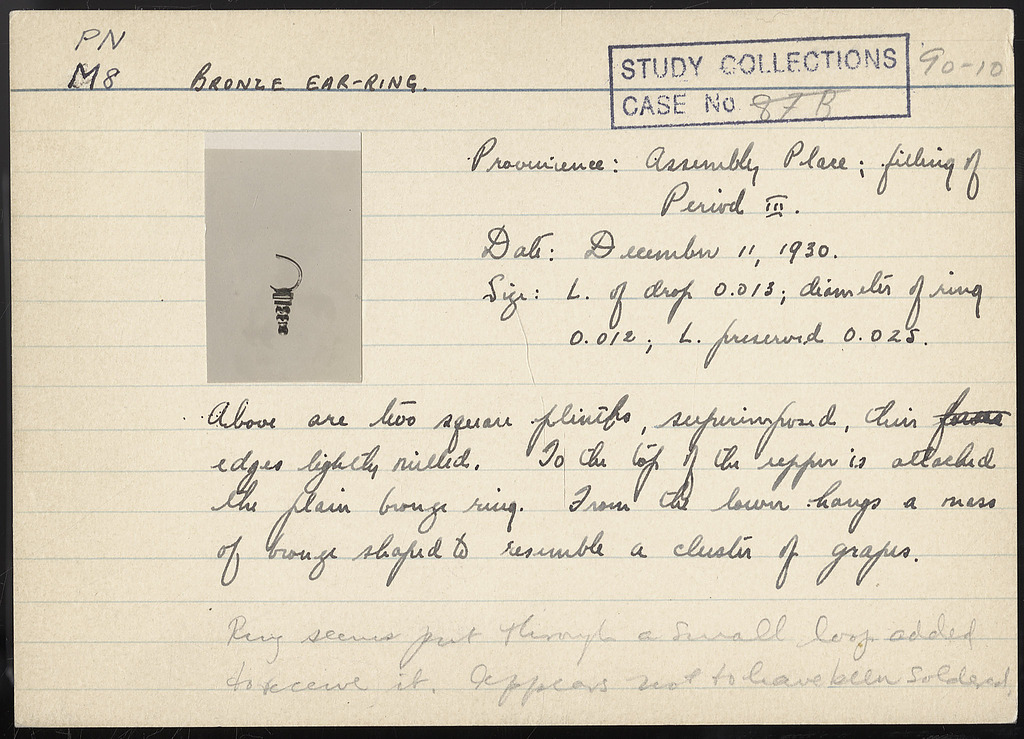 PN
M8 BRONZE EAR-RING.
STUDY COLLECTIONS
CASE No 87 B
90-10
Provenience: Assembly Place; filling of
Period III.
Date: December 11, 1930.
Size: L. of drop 0.013; diameter of ring
0.012; L. preserved 0.025.
Above are two square plinths, superimposed, their
edges lightly milled. To the top of the upper is attached
the plain bronze ring. From the lower hangs a mass
of bronze shaped to resemble a cluster of grapes.
Ring seems put through a small loop added
to receive it. Appears not to have been soldered.